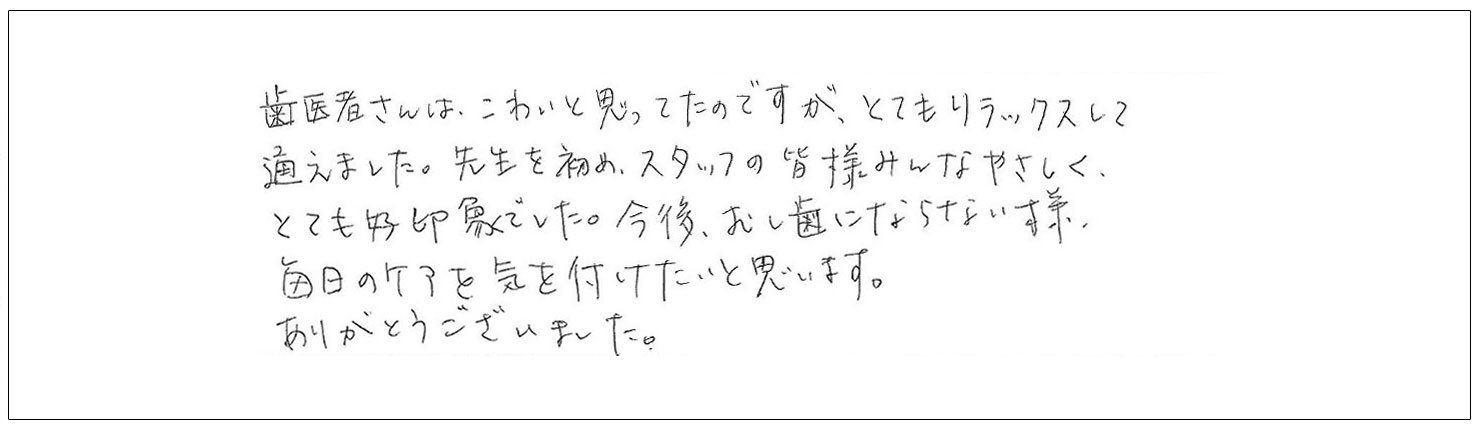 歯医者さんは、こわいと思ってたのですが、とてもリラックスして
通えました。先生を初め、スタッフの皆様みんなやさしく、
とても好印象でした。今後、むし歯にならない様、
毎日のケアを気を付けたいと思います。
ありがとうございました。